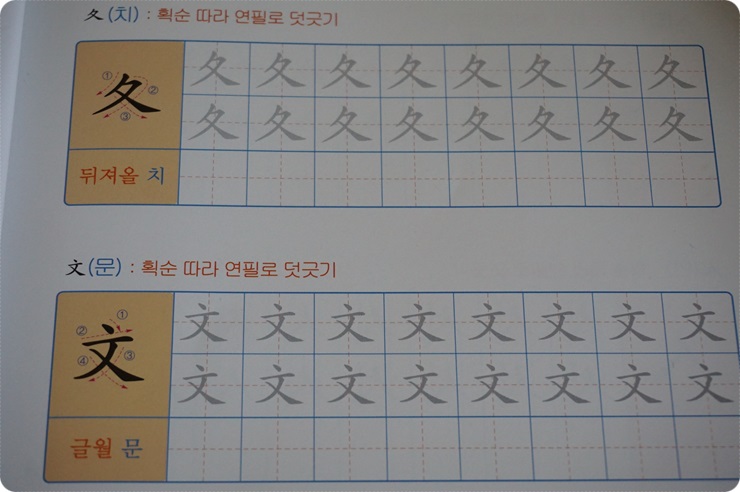 夂(치) : 획순 따라 연필로 덧긋기
① ② ③
夂 夂 夂 夂 夂 夂 夂 夂 夂
夂 夂 夂 夂 夂 夂 夂 夂
뒤져올 치
文(문) : 획순 따라 연필로 덧긋기
① ② ③ ④
文 文 文 文 文 文 文 文 文
文 文 文 文 文 文 文 文
글월 문